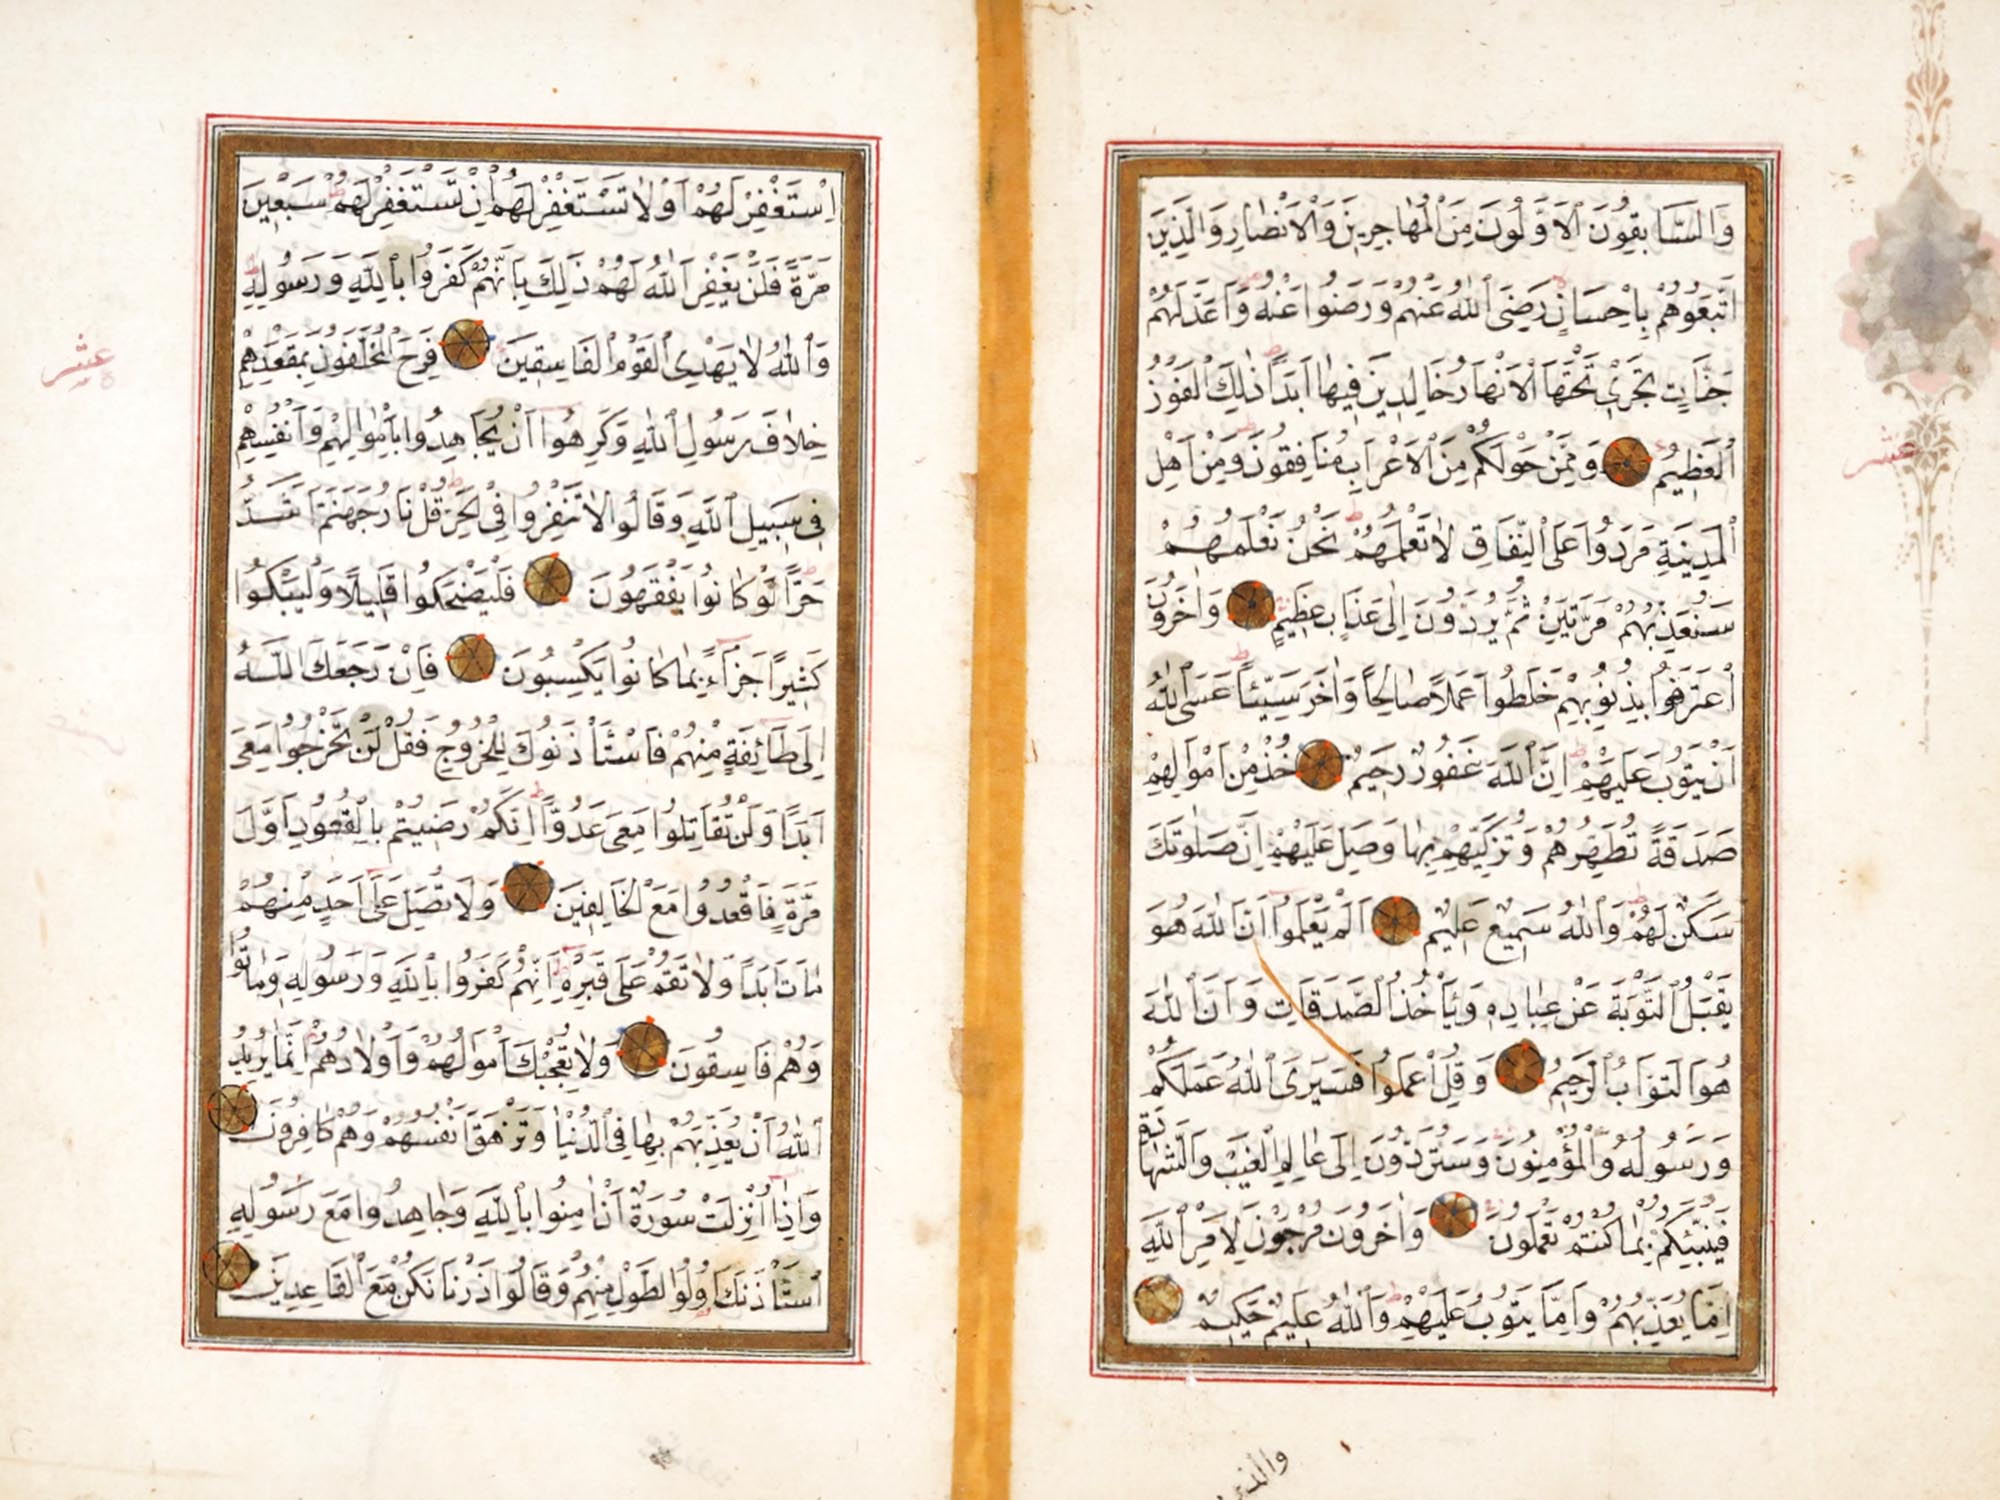 وَالسَّابِقُونَ الْاَوَّلُونَ مِنَ الْمُهَاجِرِينَ وَالْاَنْصَارِ وَالَّذِينَ
اتَّبَعُوهُمْ بِاِحْسَانٍ رَضِيَ اللّٰهُ عَنْهُمْ وَرَضُوا عَنْهُ وَاَعَدَّ لَهُمْ
جَنَّاتٍ تَجْرِي تَحْتَهَا الْاَنْهَارُ خَالِدِينَ فِيهَا اَبَدًا ذٰلِكَ الْفَوْزُ
الْعَظِيمُ وَمِمَّنْ حَوْلَكُمْ مِنَ الْاَعْرَابِ مُنَافِقُونَ وَمِنْ اَهْلِ
عشر
الْمَدِينَةِ مَرَدُوا عَلَى النِّفَاقِ لَا تَعْلَمُهُمْ نَحْنُ نَعْلَمُهُمْ
سَنُعَذِّبُهُمْ مَرَّتَيْنِ ثُمَّ يُرَدُّونَ اِلٰى عَذَابٍ عَظِيمٍ وَاٰخَرُونَ
اعْتَرَفُوا بِذُنُوبِهِمْ خَلَطُوا عَمَلًا صَالِحًا وَاٰخَرَ سَيِّئًا عَسَى اللّٰهُ
اَنْ يَتُوبَ عَلَيْهِمْ اِنَّ اللّٰهَ غَفُورٌ رَحِيمٌ خُذْ مِنْ اَمْوَالِهِمْ
صَدَقَةً تُطَهِّرُهُمْ وَتُزَكِّيهِمْ بِهَا وَصَلِّ عَلَيْهِمْ اِنَّ صَلٰوتَكَ
سَكَنٌ لَهُمْ وَاللّٰهُ سَمِيعٌ عَلِيمٌ اَلَمْ يَعْلَمُوا اَنَّ اللّٰهَ هُوَ
يَقْبَلُ التَّوْبَةَ عَنْ عِبَادِهِ وَيَأْخُذُ الصَّدَقَاتِ وَاَنَّ اللّٰهَ
هُوَ التَّوَّابُ الرَّحِيمُ وَقُلِ اعْمَلُوا فَسَيَرَى اللّٰهُ عَمَلَكُمْ
وَرَسُولُهُ وَالْمُؤْمِنُونَ وَسَتُرَدُّونَ اِلٰى عَالِمِ الْغَيْبِ وَالشَّهَادَةِ
فَيُنَبِّئُكُمْ بِمَا كُنْتُمْ تَعْمَلُونَ وَاٰخَرُونَ مُرْجَوْنَ لِاَمْرِ اللّٰهِ
اِمَّا يُعَذِّبُهُمْ وَاِمَّا يَتُوبُ عَلَيْهِمْ وَاللّٰهُ عَلِيمٌ حَكِيمٌ
والذين
اِسْتَغْفِرْ لَهُمْ اَوْ لَا تَسْتَغْفِرْ لَهُمْ اِنْ تَسْتَغْفِرْ لَهُمْ سَبْعِينَ
مَرَّةً فَلَنْ يَغْفِرَ اللّٰهُ لَهُمْ ذٰلِكَ بِاَنَّهُمْ كَفَرُوا بِاللّٰهِ وَرَسُولِهِ
وَاللّٰهُ لَا يَهْدِي الْقَوْمَ الْفَاسِقِينَ فَرِحَ الْمُخَلَّفُونَ بِمَقْعَدِهِمْ
عشر
خِلَافَ رَسُولِ اللّٰهِ وَكَرِهُوا اَنْ يُجَاهِدُوا بِاَمْوَالِهِمْ وَاَنْفُسِهِمْ
فِي سَبِيلِ اللّٰهِ وَقَالُوا لَا تَنْفِرُوا فِي الْحَرِّ قُلْ نَارُ جَهَنَّمَ اَشَدُّ
حَرًّا لَوْ كَانُوا يَفْقَهُونَ فَلْيَضْحَكُوا قَلِيلًا وَلْيَبْكُوا
كَثِيرًا جَزَاءً بِمَا كَانُوا يَكْسِبُونَ فَاِنْ رَجَعَكَ اللّٰهُ
اِلٰى طَائِفَةٍ مِنْهُمْ فَاسْتَأْذَنُوكَ لِلْخُرُوجِ فَقُلْ لَنْ تَخْرُجُوا مَعِيَ
اَبَدًا وَلَنْ تُقَاتِلُوا مَعِيَ عَدُوًّا اِنَّكُمْ رَضِيتُمْ بِالْقُعُودِ اَوَّلَ
مَرَّةٍ فَاقْعُدُوا مَعَ الْخَالِفِينَ وَلَا تُصَلِّ عَلٰى اَحَدٍ مِنْهُمْ
مَاتَ اَبَدًا وَلَا تَقُمْ عَلٰى قَبْرِهِ اِنَّهُمْ كَفَرُوا بِاللّٰهِ وَرَسُولِهِ وَمَاتُوا
وَهُمْ فَاسِقُونَ وَلَا تُعْجِبْكَ اَمْوَالُهُمْ وَاَوْلَادُهُمْ اِنَّمَا يُرِيدُ
اللّٰهُ اَنْ يُعَذِّبَهُمْ بِهَا فِي الدُّنْيَا وَتَزْهَقَ اَنْفُسُهُمْ وَهُمْ كَافِرُونَ
وَاِذَا اُنْزِلَتْ سُورَةٌ اَنْ اٰمِنُوا بِاللّٰهِ وَجَاهِدُوا مَعَ رَسُولِهِ
اسْتَأْذَنَكَ اُولُوا الطَّوْلِ مِنْهُمْ وَقَالُوا ذَرْنَا نَكُنْ مَعَ الْقَاعِدِينَ